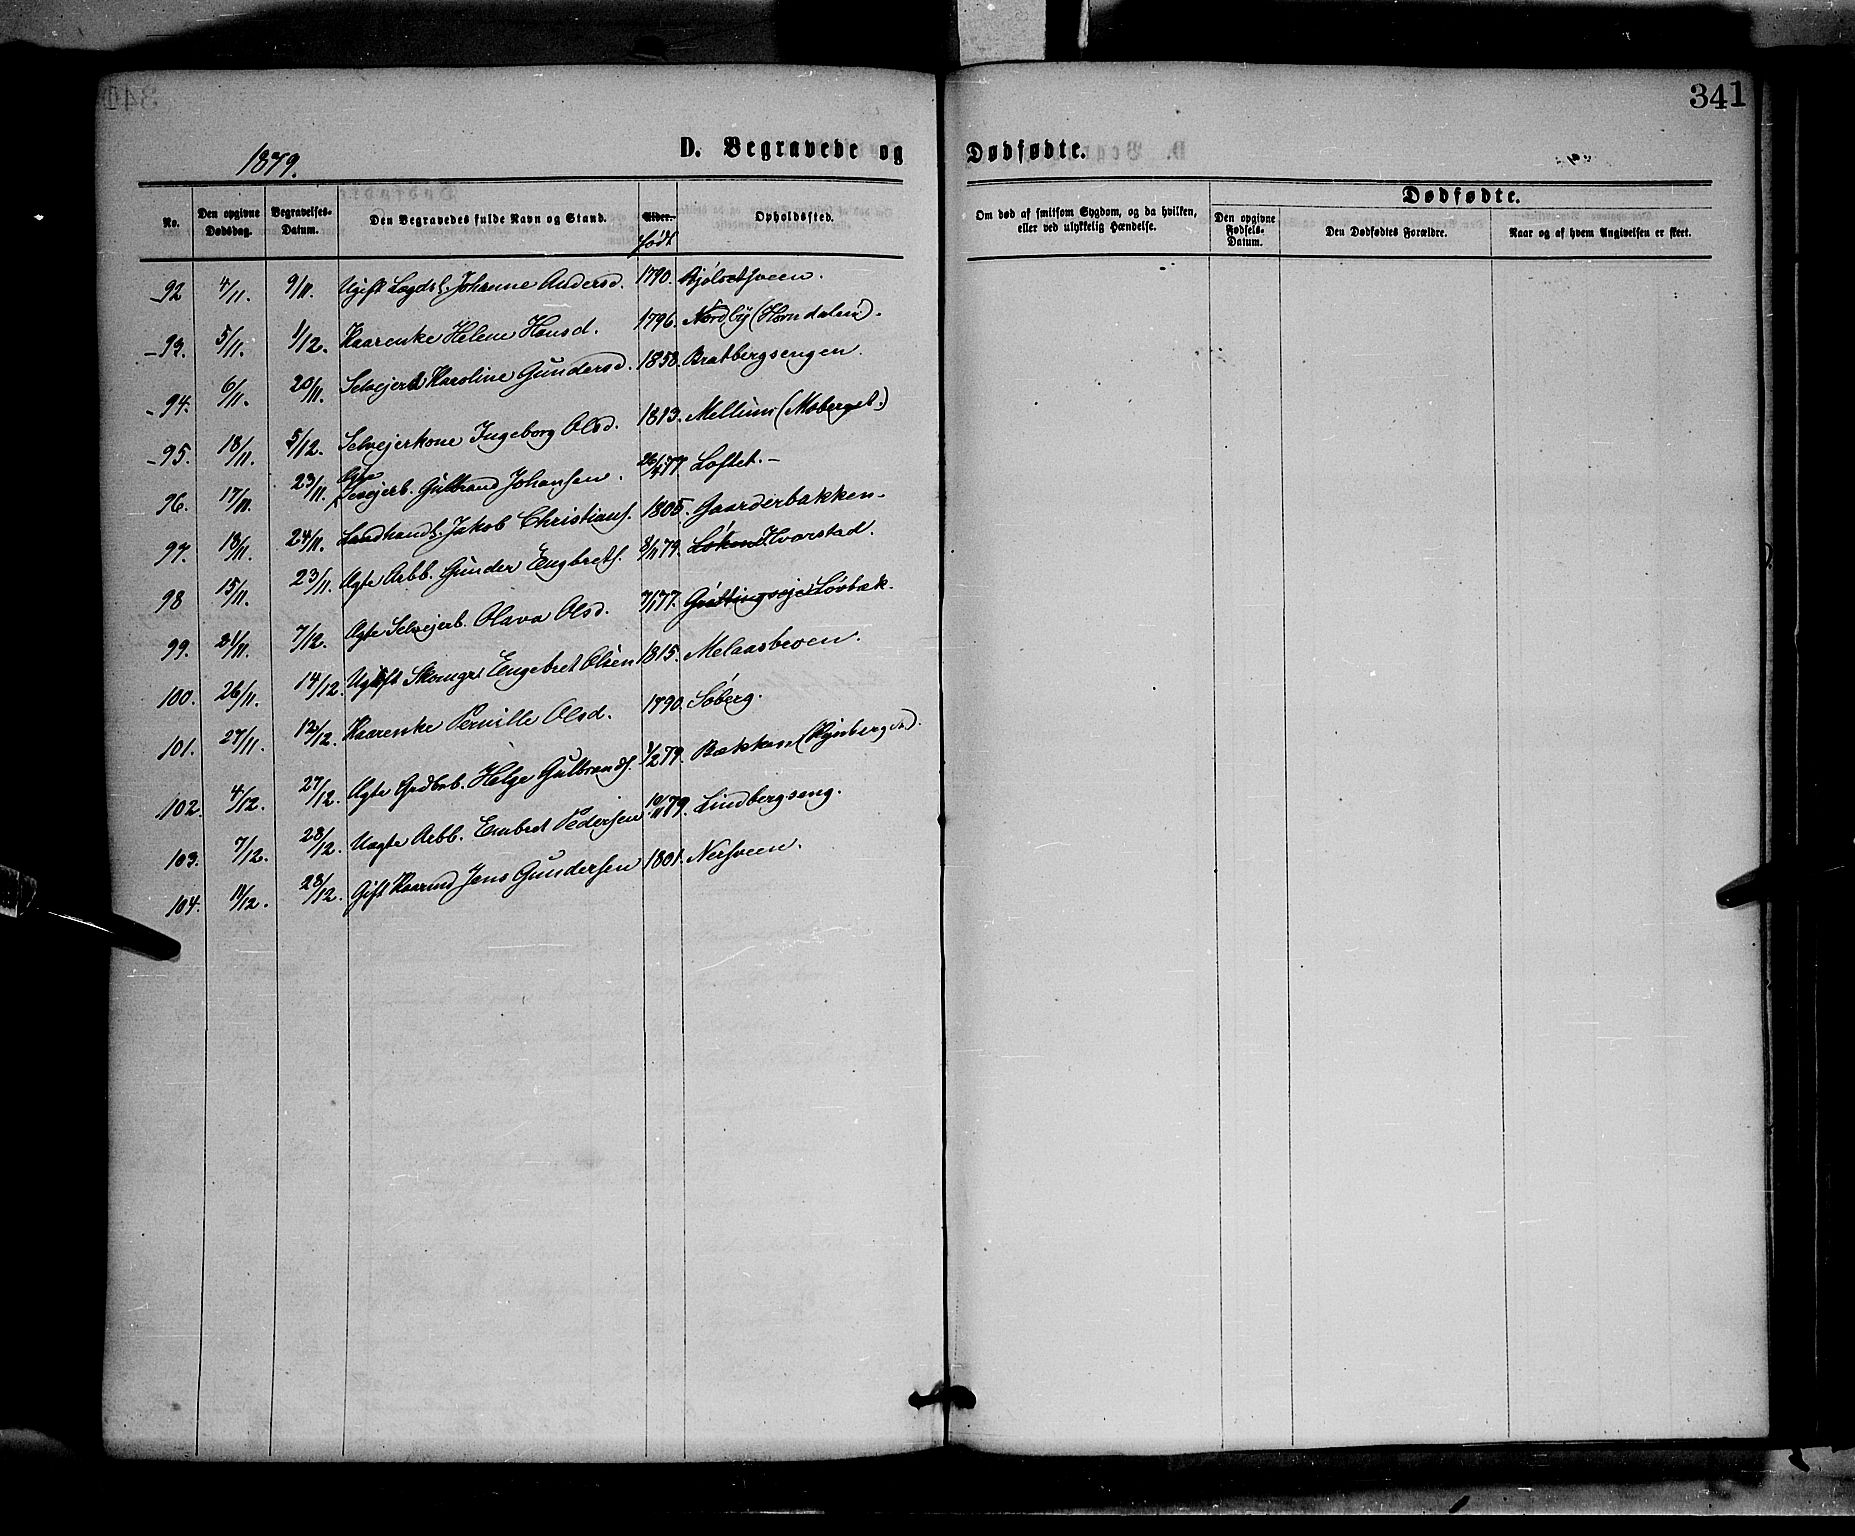 341
1879.
D. Begravede og Dødfødte.
No. Den opgivne Dødsdag. Begravelses-Datum. Den Begravedes fulde Navn og Stand. Alder. født Opholdssted.
Om død af smitsom Sygdom, og da hvilken, eller ved ulykkelig Hændelse. Dødfødte. Den opgivne Fødsels-Datum. Den Dødfødtes Forældre. Naar og af hvem Angivelsen er skeet.
92 4/11. 9/11. Ugift Lægdsl. Johanne Andersd. 1790. Bjølsetsveen.
93. 5/11. 1/12. Kaarenke Helene Hansd. 1796. Nordby (Horndalen).
94. 6/11. 20/11. Selvejerd. Karoline Gundersd. 1858. Bratbergsengen.
95. 18/11. 5/12. Selvejerkone Ingeborg Olsd. 1813. Mellum (Moberget.)
96. 17/11. 23/11. Ægte Selvejerb. Gulbrand Johansen. 26/ 77 Loftet.
97. 18/11. 24/11. Landhandl. Jakob Christians. 1805. Gaarderbakken
98 15/11. 23/11. Ægte Arbb. Gunder Engbrets. 8/11 79. Løken Hvorstad.
99. 21/11. 7/12. Ægte Selvejerb. Olava Olsd. 7/1 77. Løvbæk.
100. 26/11. 14/12. Ugift Skomgr Engebret Olsen 1815. Melaasbroen.
101. 27/11. 12/12. Kaarenke Pernille Olsd. 1790. Søberg.
102. 4/12. 27/12. Ægte Grdbrb. Helge Gulbrands. 1/2 79. Bækken
103. 7/12. 28/12. Uægte Arbb. Embret Pedersen 10/11 79. Lindbergseng.
104. 11/12. 28/12. Gift Kaarmd Jens Gundersen 1801. Nersveen.